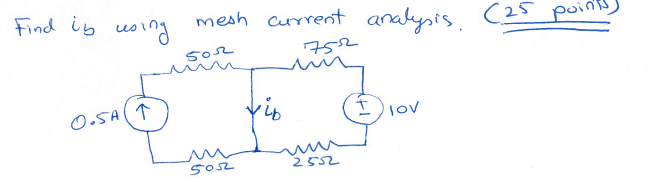 Find ib using mesh current analysis. (25 points)
50Ω 75Ω
0.5A ib 10V
50Ω 25Ω